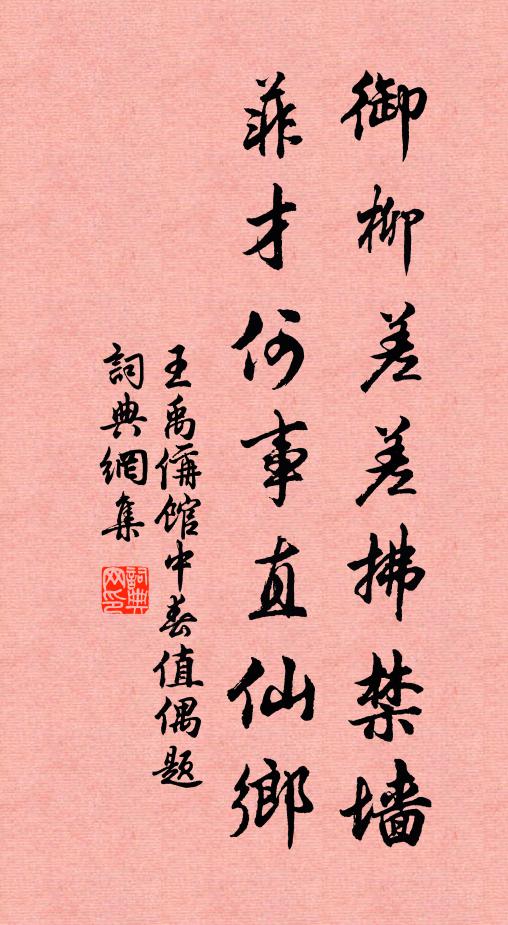 御柳差差拂禁墙
菲才何事直仙鄉
王禹偁館中春值偶題
詞典網集
詞典网印